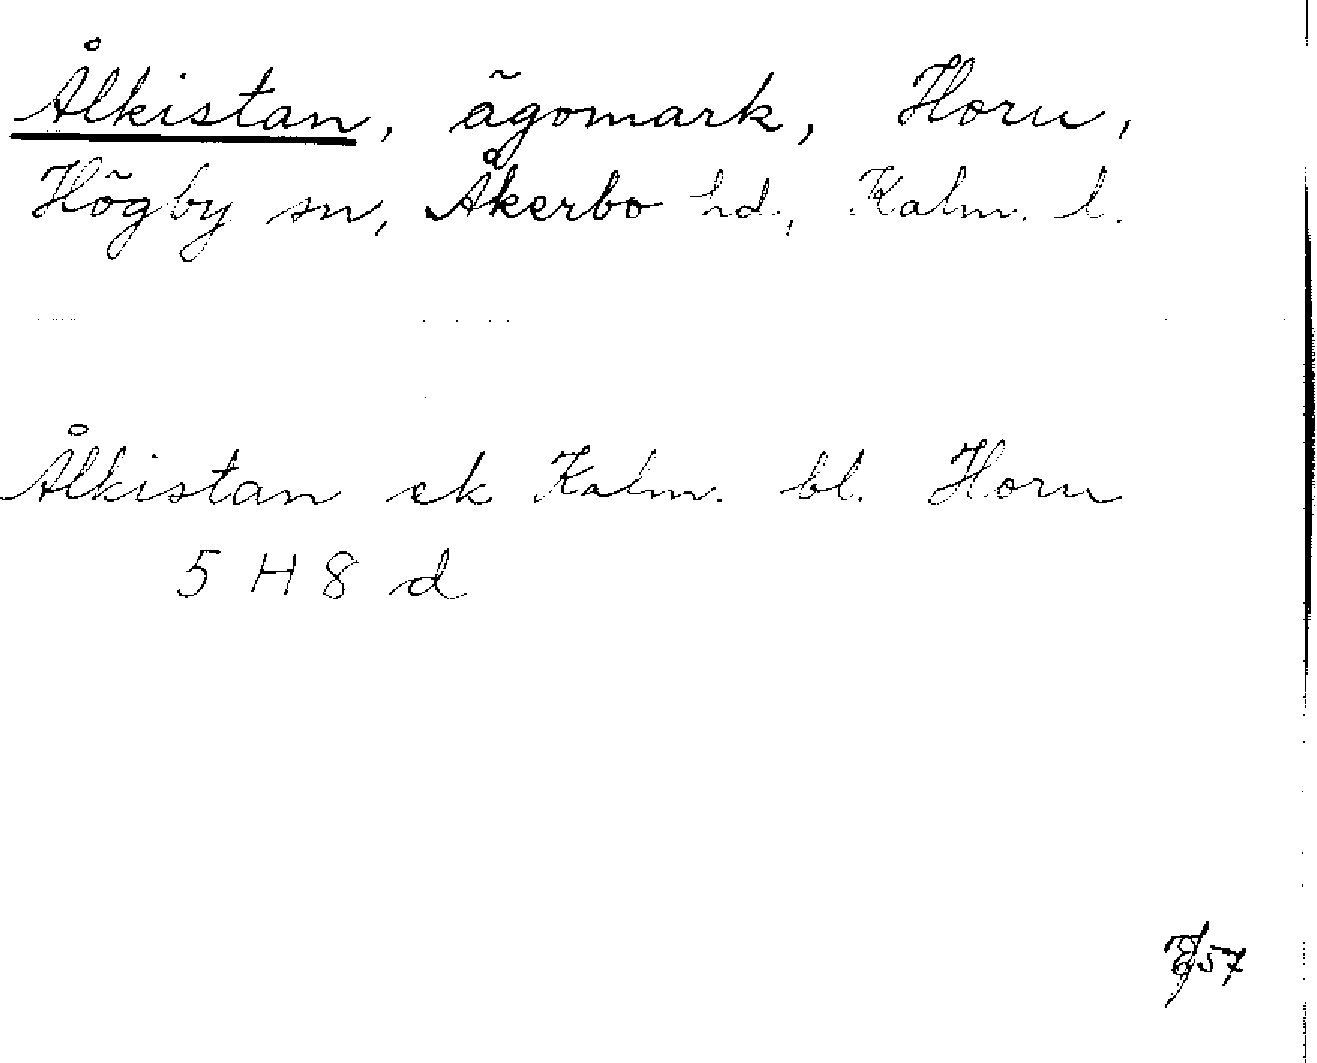 Ålkistan, ägomark, Horn,
Högby sn, Åkerbo hd, Kalm. l.
Ålkistan ek Kalm. bl. Horn
5 H 8 d
57